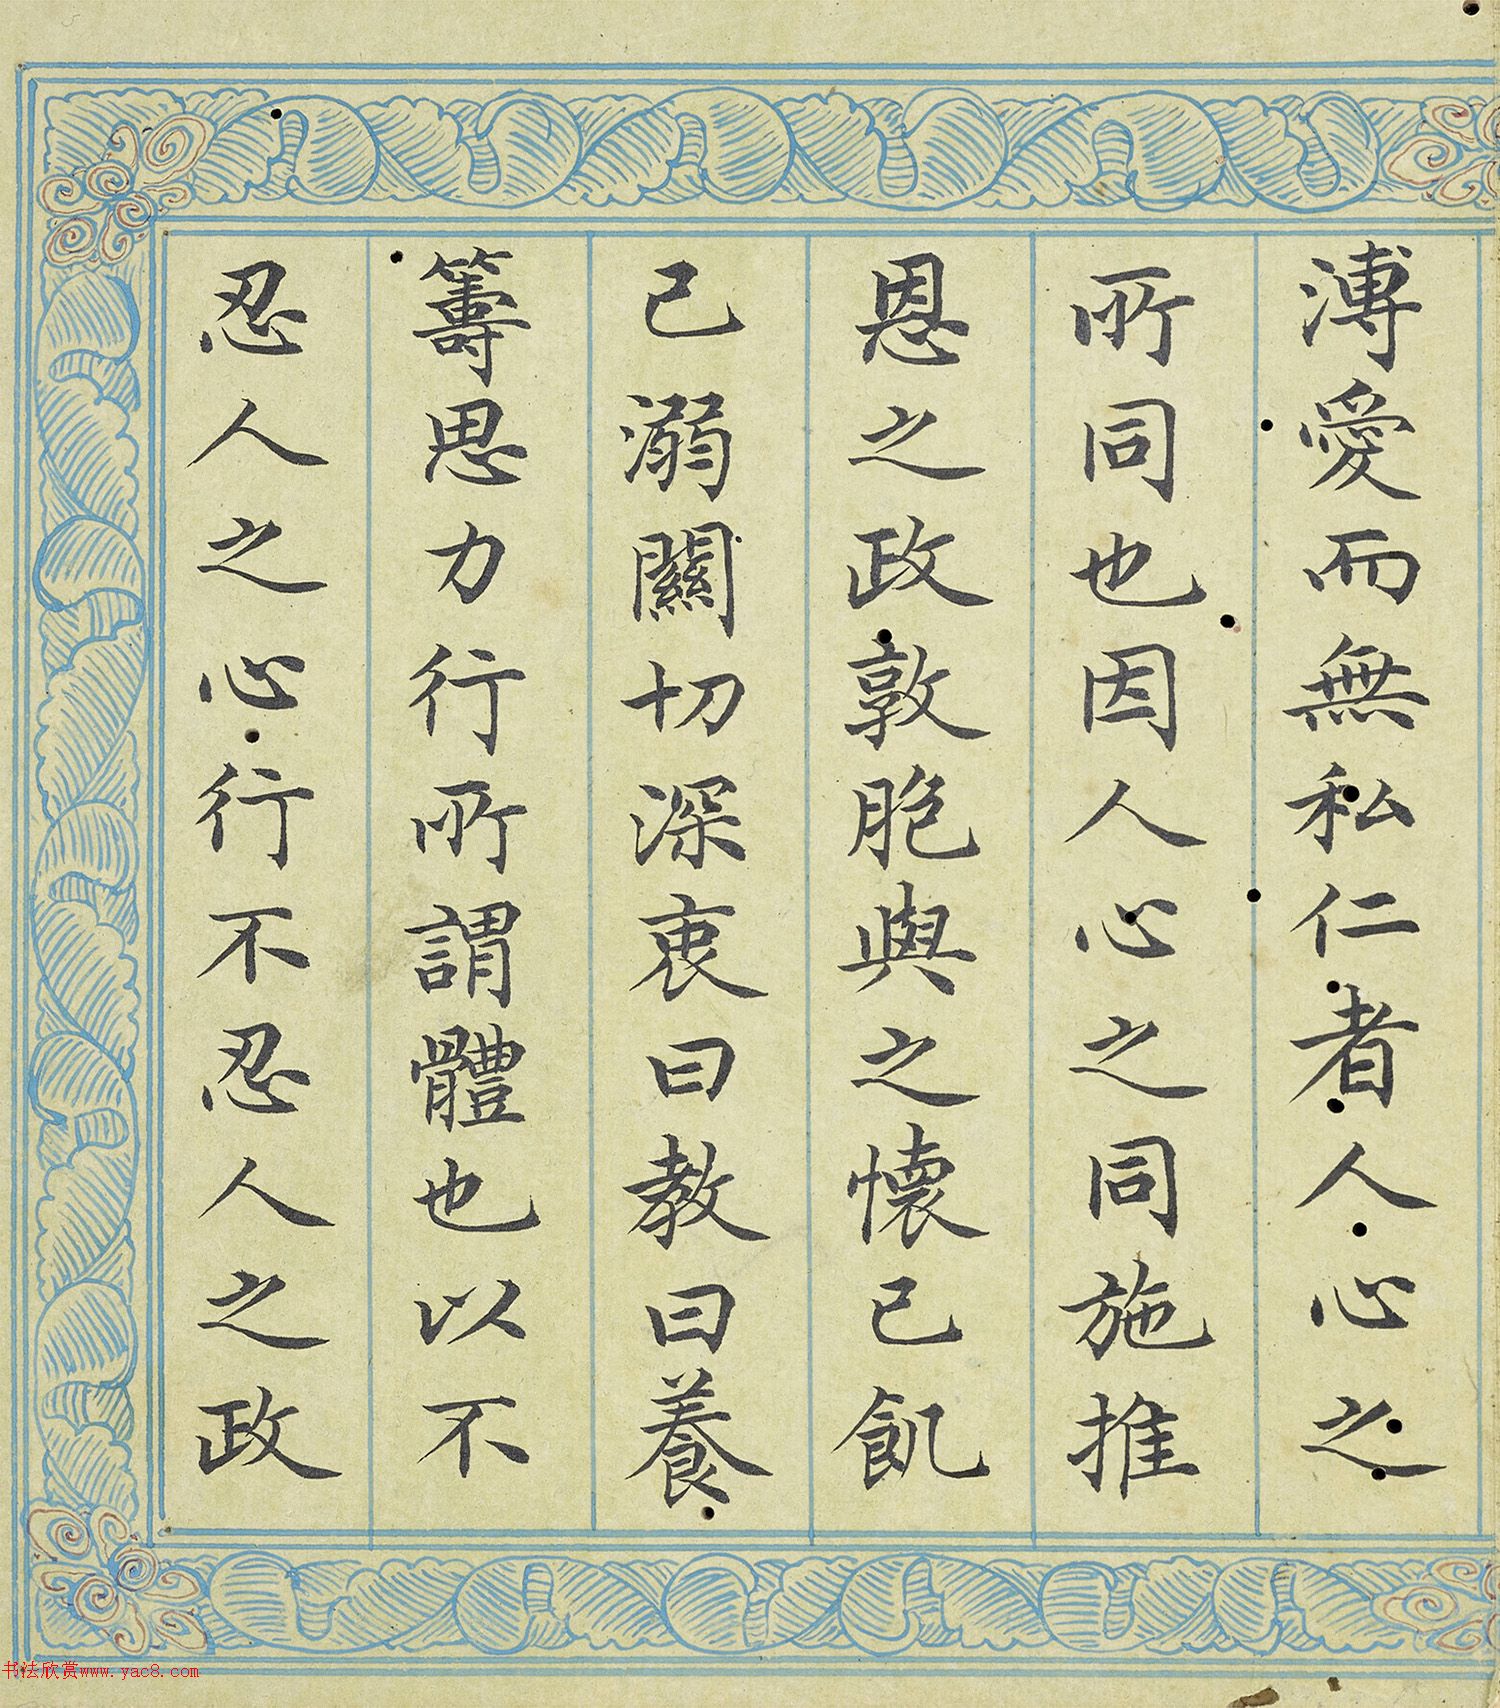 溥愛而無私仁者人心之
所同也因人心之同施推
恩之政敦胞與之懷已飢
已溺關切深衷曰教曰養
籌思力行所謂體也以不
忍人之心行不忍人之政
书法欣赏www.yac8.com